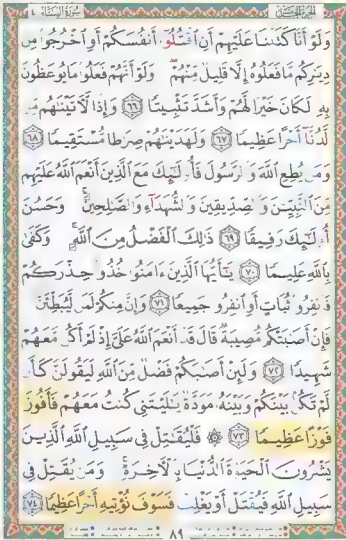 سُورَةُ النِّسَاءِ ٤
وَلَوْ أَنَّا كَتَبْنَا عَلَيْهِمْ أَنِ اقْتُلُوٓا۟ أَنفُسَكُمْ أَوِ اخْرُجُوا۟ مِن
دِيَٰرِكُم مَّا فَعَلُوهُ إِلَّا قَلِيلٌ مِّنْهُمْ وَلَوْ أَنَّهُمْ فَعَلُوا۟ مَا يُوعَظُونَ
بِهِۦ لَكَانَ خَيْرًا لَّهُمْ وَأَشَدَّ تَثْبِيتًا ٦٦ وَإِذًا لَّءَاتَيْنَٰهُم مِّن
لَّدُنَّآ أَجْرًا عَظِيمًا ٦٧ وَلَهَدَيْنَٰهُمْ صِرَٰطًا مُّسْتَقِيمًا ٦٨
وَمَن يُطِعِ اللَّهَ وَالرَّسُولَ فَأُو۟لَٰٓئِكَ مَعَ الَّذِينَ أَنْعَمَ اللَّهُ عَلَيْهِم
مِّنَ النَّبِيِّـۧنَ وَالصِّدِّيقِينَ وَالشُّهَدَآءِ وَالصَّٰلِحِينَ وَحَسُنَ
أُو۟لَٰٓئِكَ رَفِيقًا ٦٩ ذَٰلِكَ الْفَضْلُ مِنَ اللَّهِ وَكَفَىٰ
بِاللَّهِ عَلِيمًا ٧٠ يَٰٓأَيُّهَا الَّذِينَ ءَامَنُوا۟ خُذُوا۟ حِذْرَكُمْ
فَانفِرُوا۟ ثُبَاتٍ أَوِ انفِرُوا۟ جَمِيعًا ٧١ وَإِنَّ مِنكُمْ لَمَن لَّيُبَطِّئَنَّ
فَإِنْ أَصَٰبَتْكُم مُّصِيبَةٌ قَالَ قَدْ أَنْعَمَ اللَّهُ عَلَىَّ إِذْ لَمْ أَكُن مَّعَهُمْ
شَهِيدًا ٧٢ وَلَئِنْ أَصَٰبَكُمْ فَضْلٌ مِّنَ اللَّهِ لَيَقُولَنَّ كَأَن
لَّمْ تَكُنۢ بَيْنَكُمْ وَبَيْنَهُۥ مَوَدَّةٌ يَٰلَيْتَنِى كُنتُ مَعَهُمْ فَأَفُوزَ
فَوْزًا عَظِيمًا ٧٣ ۞ فَلْيُقَٰتِلْ فِى سَبِيلِ اللَّهِ الَّذِينَ
يَشْرُونَ الْحَيَوٰةَ الدُّنْيَا بِالْءَاخِرَةِ وَمَن يُقَٰتِلْ فِى
سَبِيلِ اللَّهِ فَيُقْتَلْ أَوْ يَغْلِبْ فَسَوْفَ نُؤْتِيهِ أَجْرًا عَظِيمًا ٧٤
٨٩